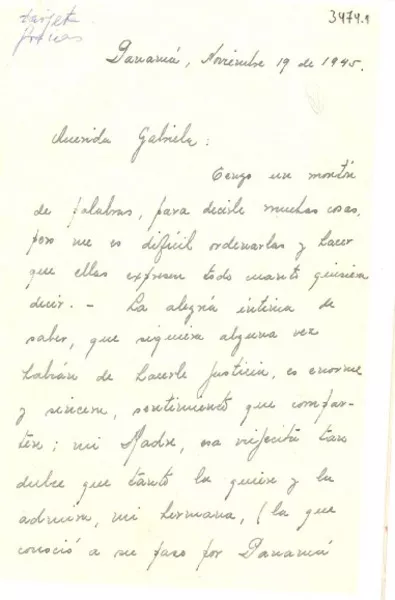 tarjeta
gracias
3474.1
Panamá, Noviembre 19 de 1945.
Querida Gabriela:
Tengo un montón
de palabras, para decirle muchas cosas,
pero me es difícil ordenarlas y hacer
que ellas expresen todo cuanto quisiera
decir. - La alegría íntima de
saber, que siquiera alguna vez
habían de hacerle justicia, es enorme
y sincera, sentimiento que compar-
ten; mi Madre, esa viejecita tan
dulce que tanto la quiere y la
admira, mi hermana, (la que
conoció a su paso por Panamá